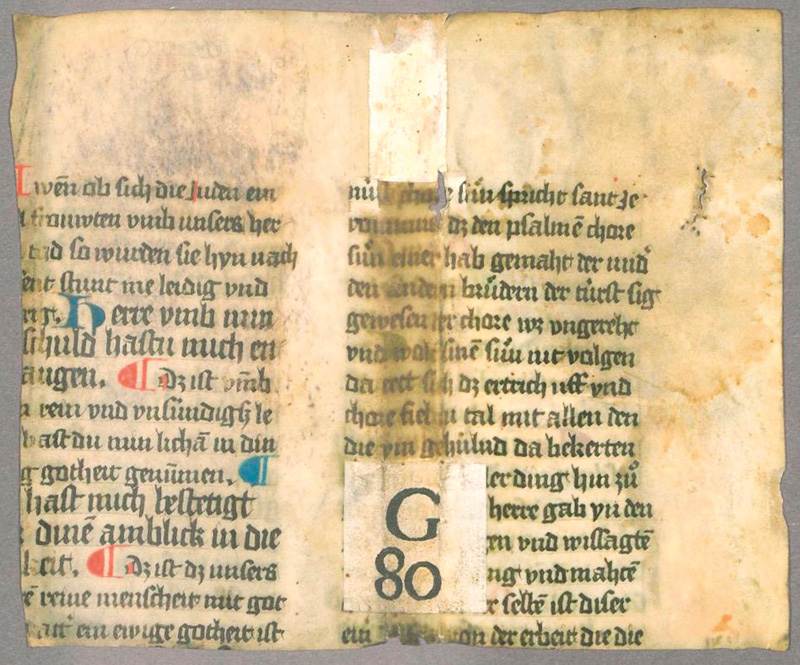 wen̄ ob sich die Juden ein
frouwten vmb unsers her
tod so wurden sie hyn nach
stunt me leidig vnd
Herre vmb min
schuld hastu mich en
augen. ¶ Dz ist vm̄b
rein vnd vnsúndig le
hastu min lichā in din
gotheit genūmen. ¶
hast mich bestetigt
dinē amblick in die
keit. ¶ Dz ist dz unsers
reine menscheit mit got
ein ewige gotheit ist
sún spricht sant Je
dz den psalmē chore
sún hab gemaht der und
den brúdern der túrst sig
gewesen chore wz vngereht
vnd sinē sún nit volgen
da dz ertrich uff vnd
chore fiel tal mit allen den
die ym gehúlnd da bekerten
ler ding hin zů
herre gab yn den
vnd wissagtē
vnd mahtē
seltē ist diser
ein von der erbeit die die
G
80